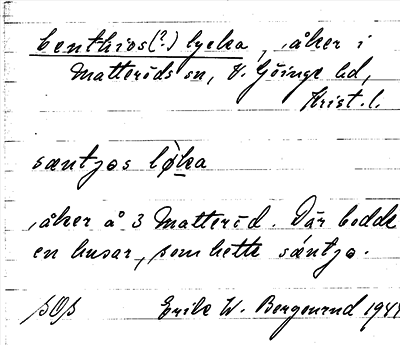 benthios(?) lycka, åker i
Matteröds sn, V. Göinge hd,
Krist. l.
sæntjos løka
åker å 3 Matteröd. Där bodde
en husar, som hette sæntjo.
Erik W. Bergenrud 194